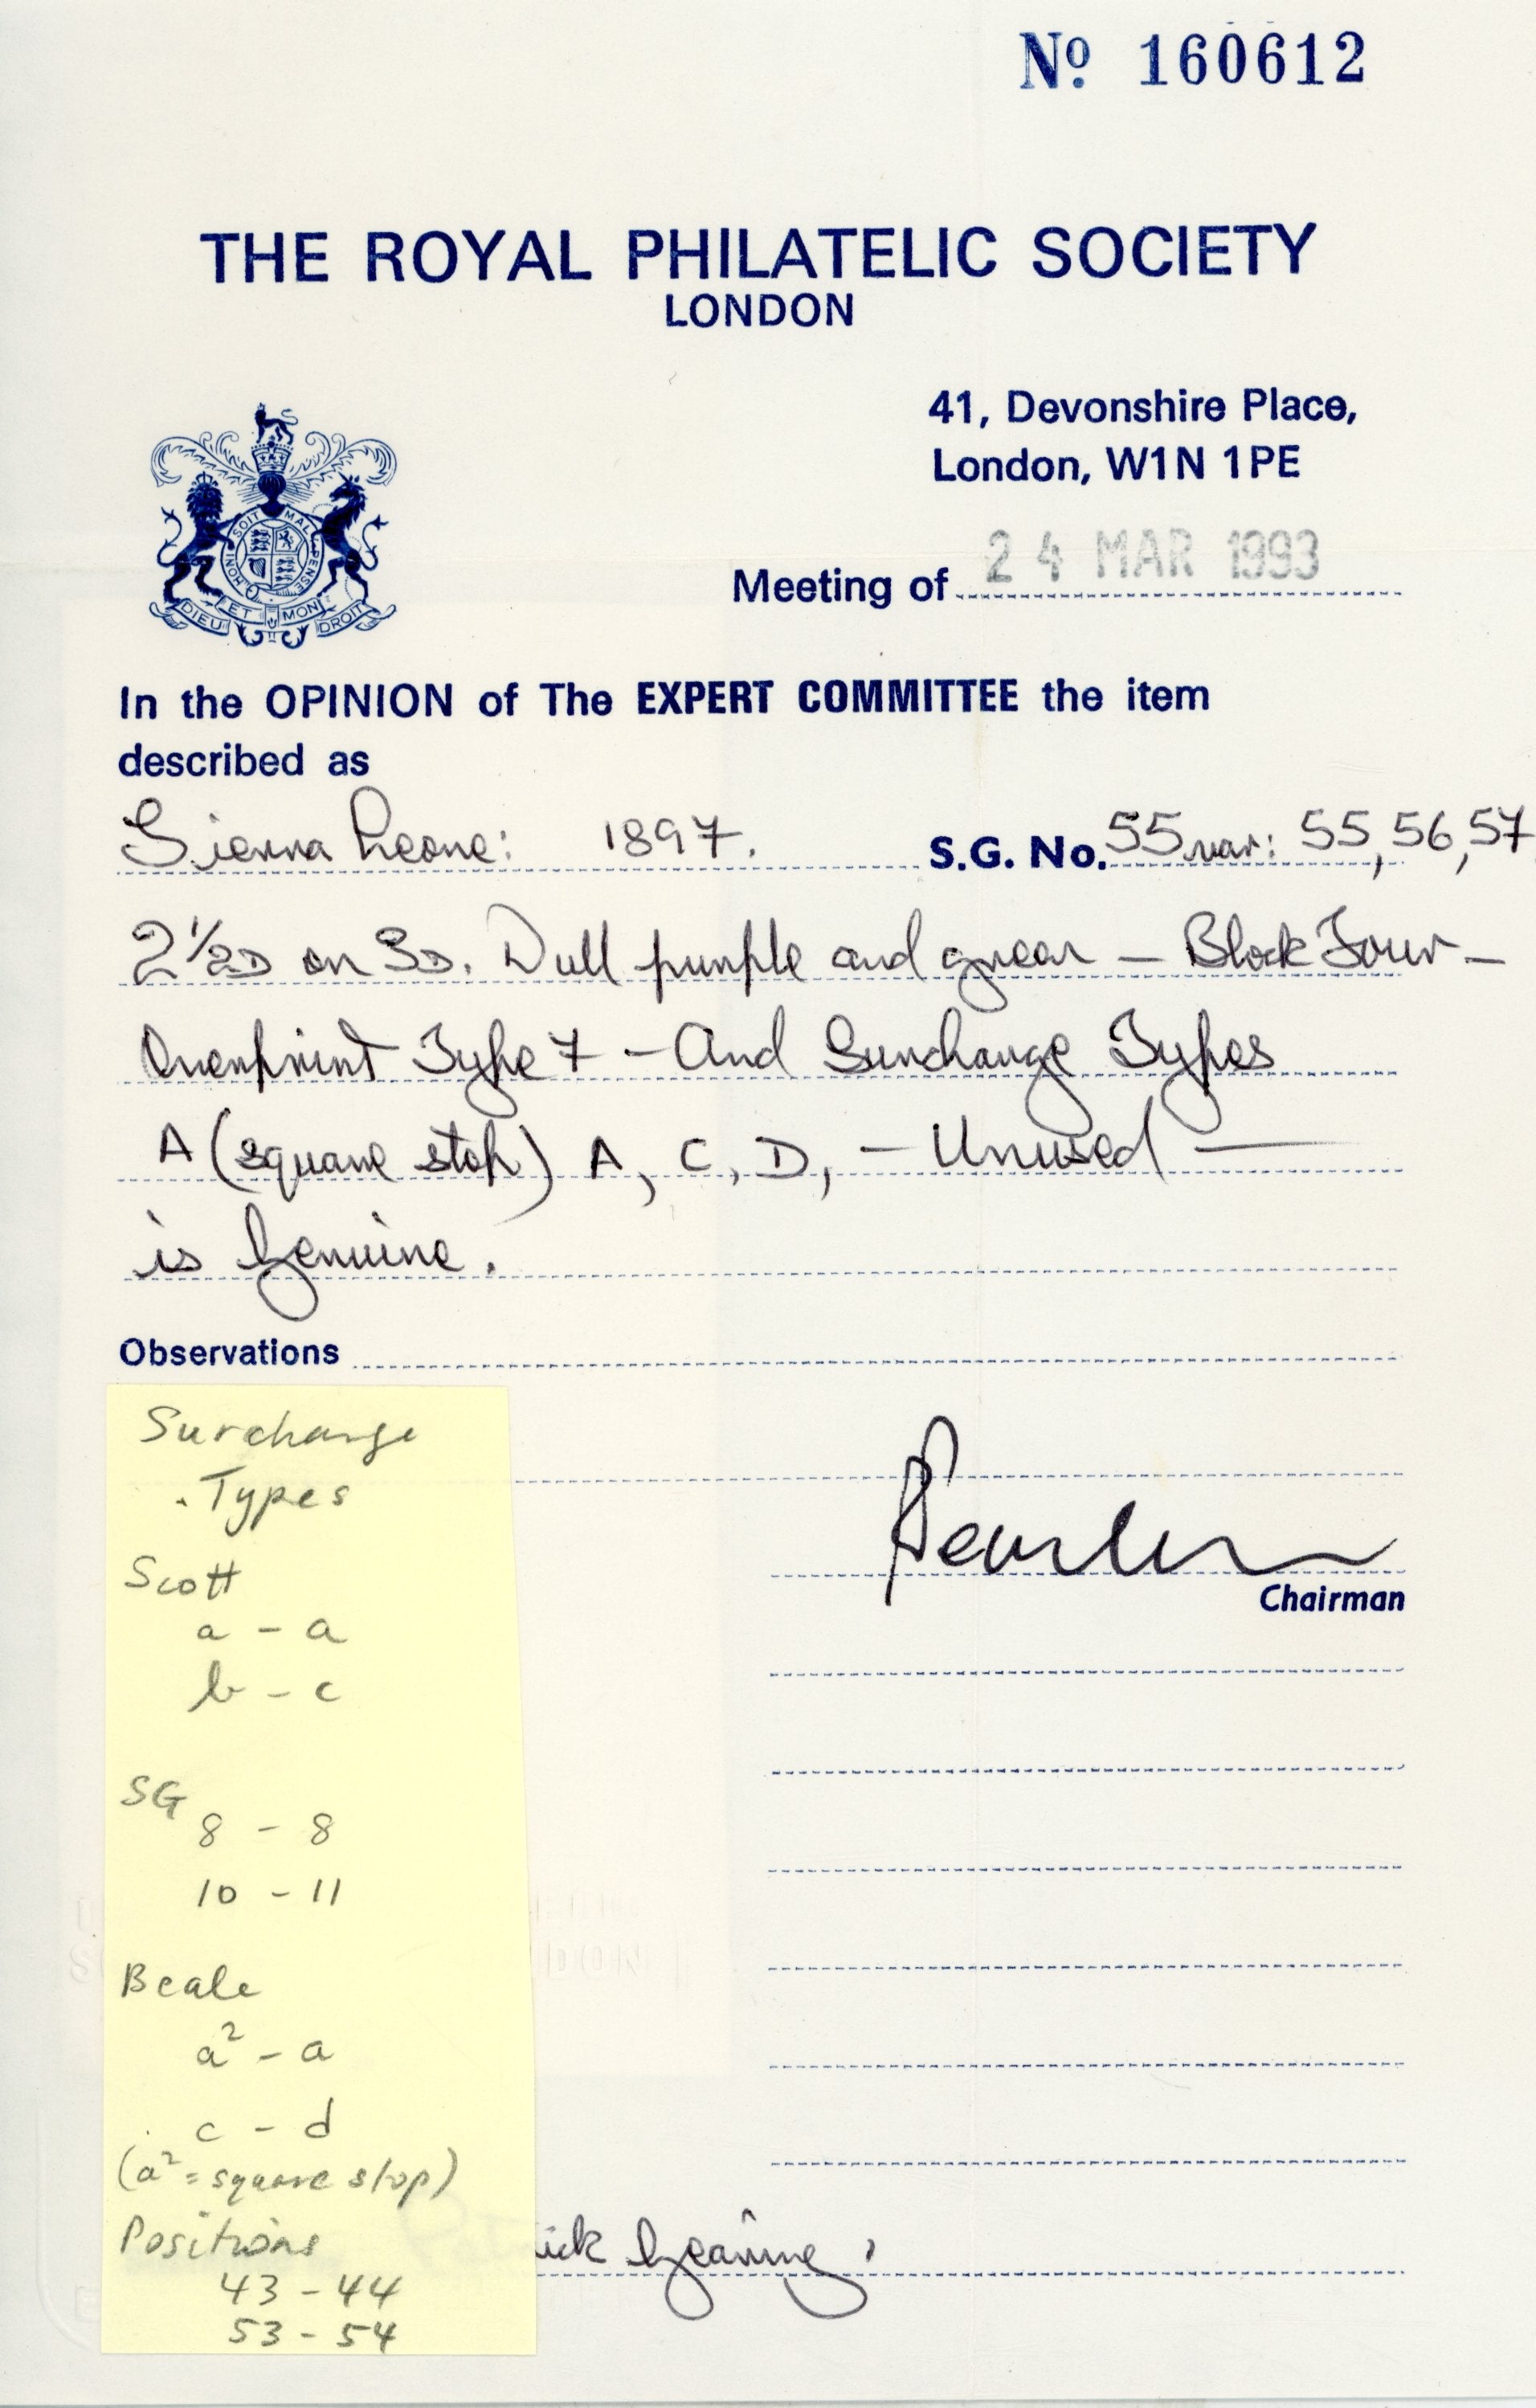 Nº 160612
THE ROYAL PHILATELIC SOCIETY
LONDON
41, Devonshire Place,
London, W1N 1PE
HONI SOIT MAL PENSE
DIEU ET MON DROIT
Meeting of 24 MAR 1993
In the OPINION of The EXPERT COMMITTEE the item
described as
Sierra Leone: 1897. S.G. No. 55 var: 55, 56, 57
2½D on 3D. Dull purple and green — Block Four —
Overprint Type 7 — And Surcharge Types
A (square stop) A, C, D, — Unused —
is Genuine.
Observations
Surcharge
Types
Scott
a - a
b - c
SG
8 - 8
10 - 11
Beale
a² - a
c - d
(a² = square stop)
Positions
43 - 44
53 - 54
Chairman